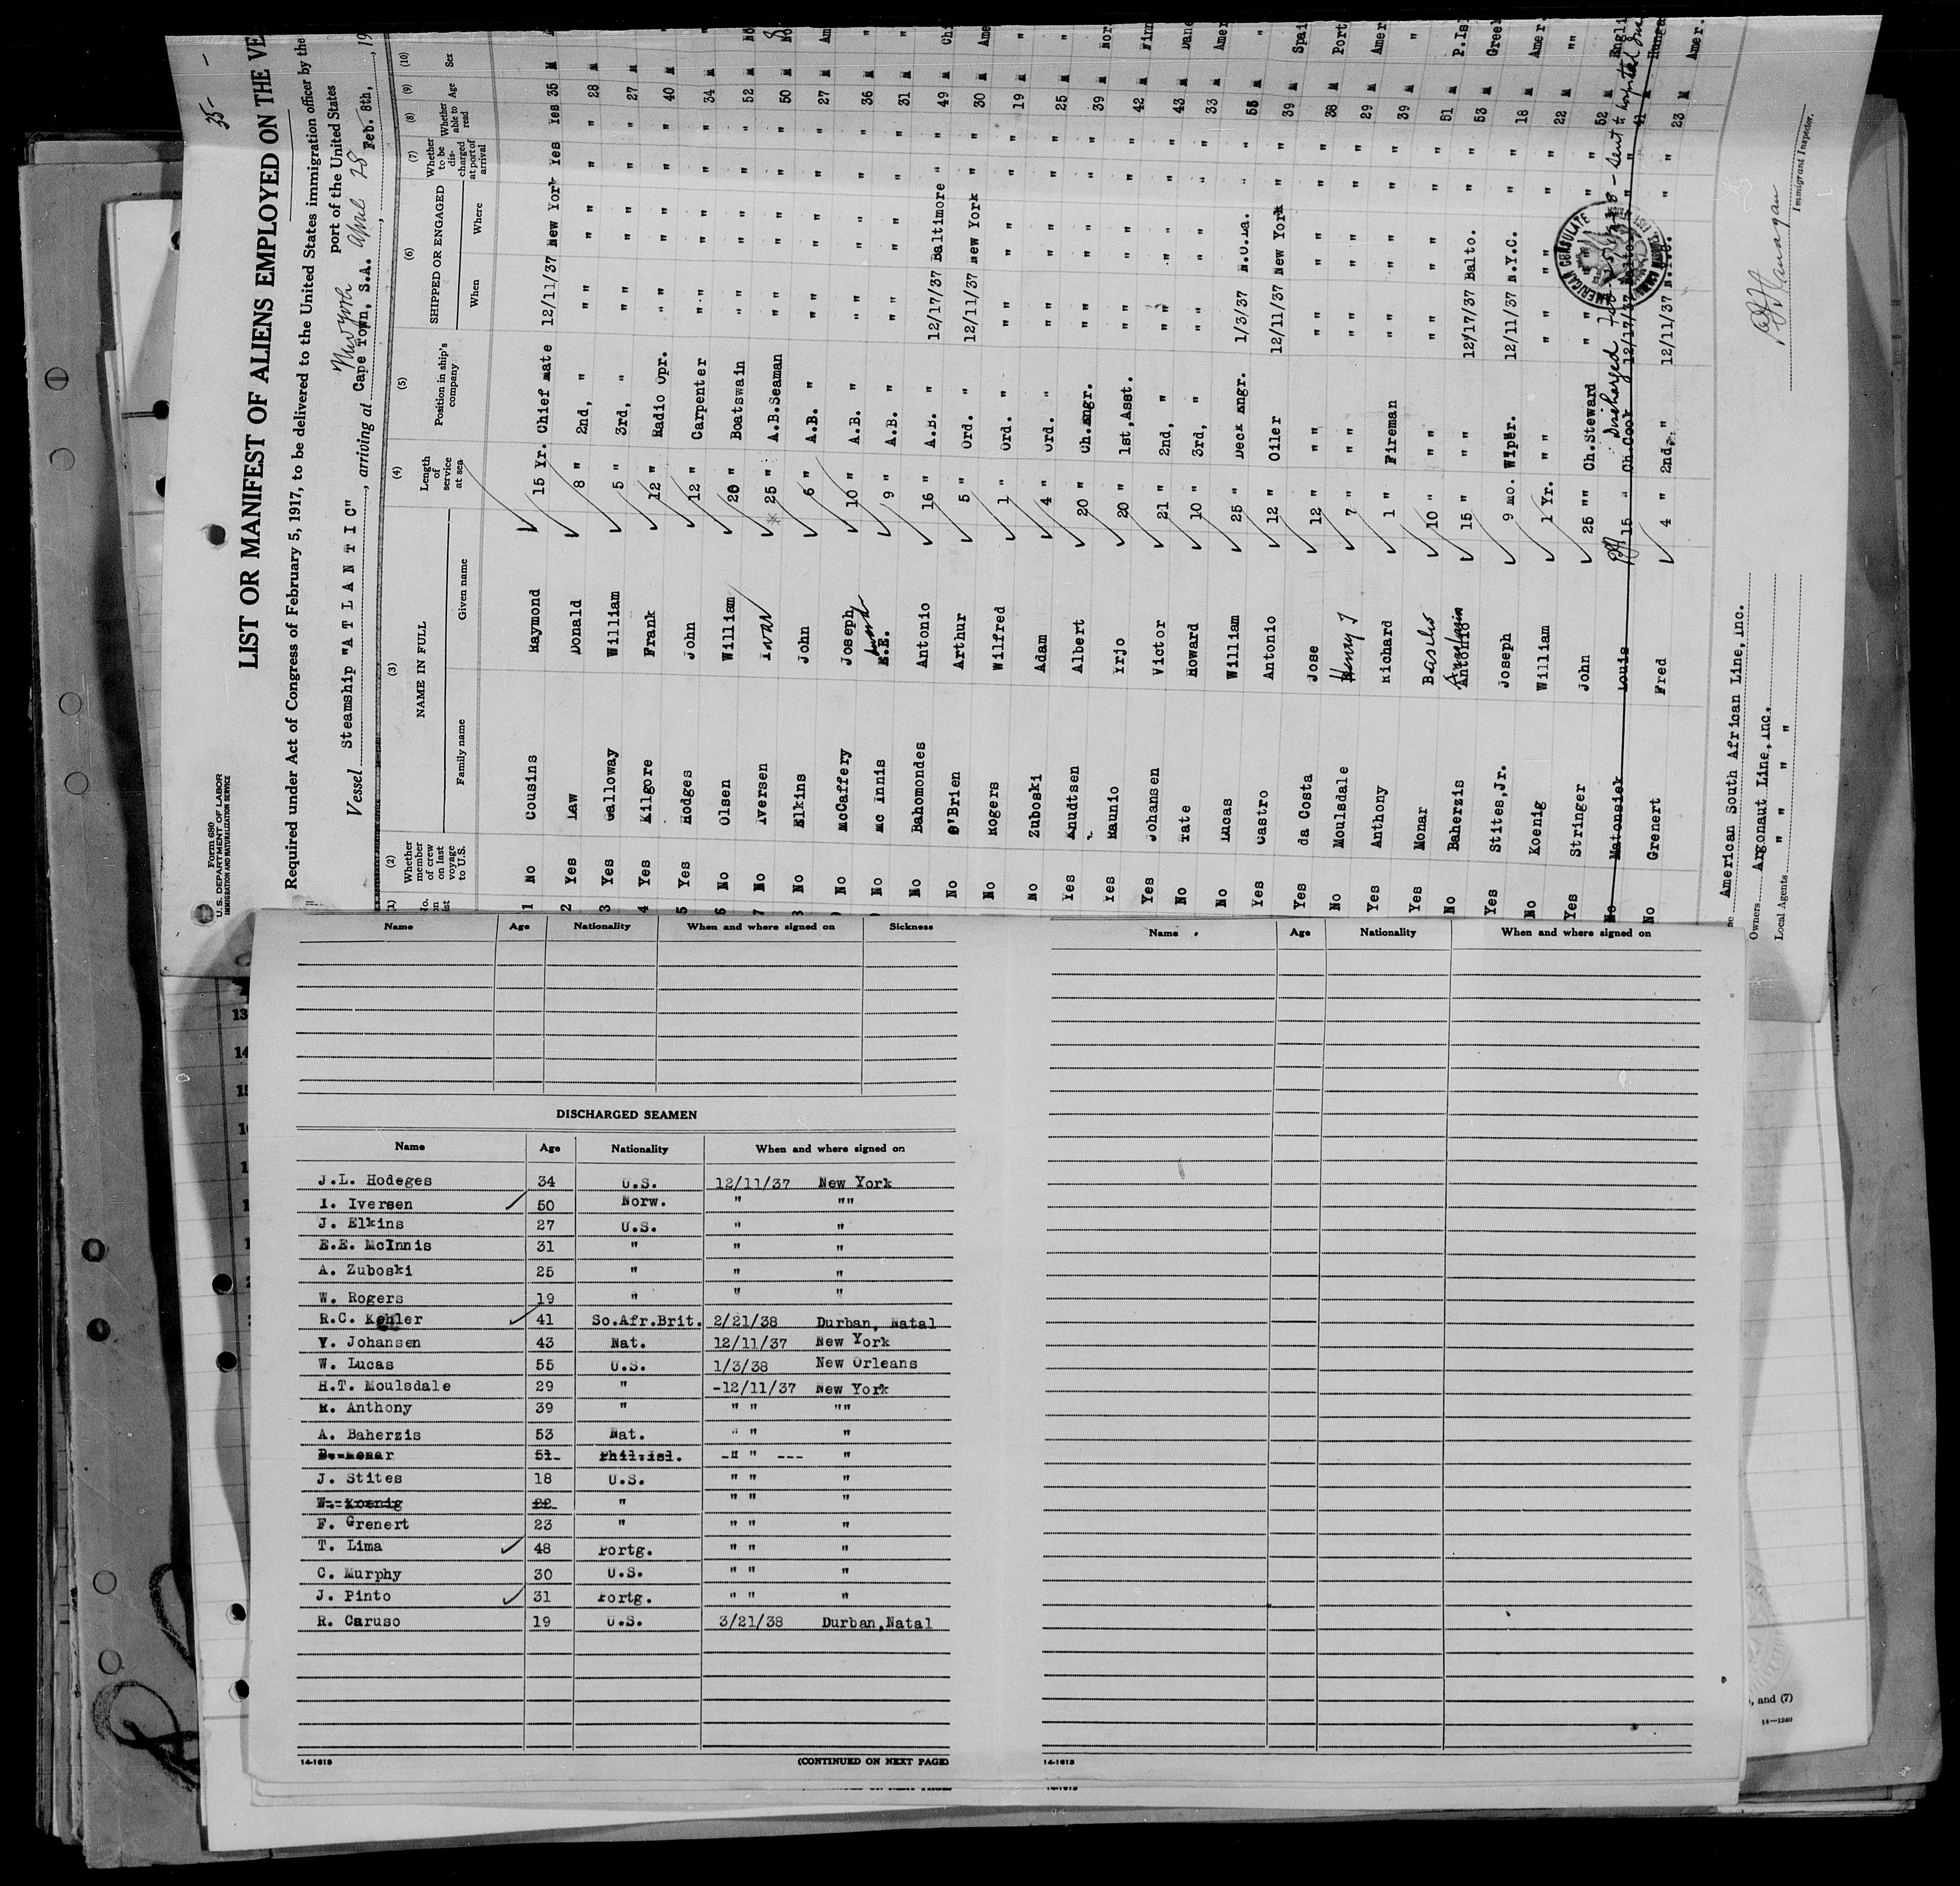 35-
Form 680
U.S. DEPARTMENT OF LABOR
IMMIGRATION AND NATURALIZATION SERVICE
LIST OR MANIFEST OF ALIENS EMPLOYED ON THE VE
Required under Act of Congress of February 5, 1917, to be delivered to the United States immigration officer by the
port of the United States
Vessel Steamship "A T L A N T I C", arriving at New York April 28
Cape Town, S.A. Feb. 8th, , 19
(1) (2) (3) (4) (5) (6) (7) (8) (9) (10)
Whether member of crew on last voyage to U.S. NAME IN FULL Length of service at sea Position in ship's company SHIPPED OR ENGAGED Whether to be discharged at port of arrival Whether able to read Age Sex
Family name Given name When Where
1 No Cousins Raymond 15 Yr. Chief mate 12/11/37 New York Yes Yes 35 M
2 Yes Law Donald 8 " 2nd, " " " " " " 28 M
3 Yes Galloway William 5 " 3rd, " " " " " " 27 M
4 Yes Kilgore Frank 12 " Radio Opr. " " " " " 40 M
5 Yes Hodges John 12 " Carpenter " " " " " 34 M
6 No Olsen William 20 " Boatswain " " " " " 52 M No
7 No Iversen Ivar 25 " A.B.Seaman " " " " 50 M No
8 No Elkins John 6 " A.B. " " " " " 27 M Am
No McCaffery Joseph 10 " A.B. " " " " " " 36 M "
No Mc Innis E.E. 9 " A.B. " " " " " " 31 M "
No Bahomondes Antonio 16 " A.B. " 12/17/37 Baltimore " " 49 M Chi
No O'Brien Arthur 5 " Ord. " 12/11/37 New York " " 30 M Ame
No Rogers Wilfred 1 " Ord. " " " " " 19 M "
No Zuboski Adam 4 " Ord. " " " " " 25 M "
Yes Knudtsen Albert 20 " Ch.Engr. " " " " " 39 M Nor
Yes Raunio Yrjo 20 " 1st,Asst. " " " " " 42 M Finn
Yes Johansen Victor 21 " 2nd, " " " " " " 43 M Dane
No Tate Howard 10 " 3rd, " " " " " " 33 M Amer
No Lucas William 25 " Deck Engr. 1/3/37 N.O.La. " " 55 M "
Yes Castro Antonio 12 " Oiler 12/11/37 New York " " 39 M Spai
Yes da Costa Jose 12 " " " " " " " 38 M Port
No Moulsdale Henry T 7 " " " " " " " 29 M Amer
Yes Anthony Richard 1 " Fireman " " " " " 39 M "
Yes Monar Baselio 10 " " " " " " " 51 M P.Is
No Baherzis Antonio 15 " " " 12/17/37 Balto. " " 53 M Gree
Yes Stites,Jr. Joseph 9 mo. Wiper. 12/11/37 N.Y.C. " " 18 M Amer.
No Koenig William 1 Yr. " " " " " " " 22 M ""
Yes Stringer John 25 "" Ch.Steward " " " " " 52 M Engli
Discharged - Sent to hospital
No Matonsick Louis 15 " Ch.Cook 12/17/37 Balto. " " 41 M Hunga
No Grenert Fred 4 " 2nd, " 12/11/37 N.Y.C. " " 23 M Amer.
AMERICAN CONSULATE
American South African Line,Inc.
Owners Argonaut Line,Inc.
Local Agents " " " "
Immigrant Inspector.
Name Age Nationality When and where signed on Sickness
DISCHARGED SEAMEN
Name Age Nationality When and where signed on
J.L. Hodeges 34 U.S. 12/11/37 New York
I. Iversen 50 Norw. " ""
J. Elkins 27 U.S. " "
E.E. McInnis 31 " " "
A. Zuboski 25 " " "
W. Rogers 19 " " "
R.C. Kehler 41 So.Afr.Brit. 2/21/38 Durban, Natal
V. Johansen 43 Nat. 12/11/37 New York
W. Lucas 55 U.S. 1/3/38 New Orleans
H.T. Moulsdale 29 " -12/11/37 New York
R. Anthony 39 " " " ""
A. Baherzis 53 Nat. " " "
B. Monar 51 Phil.Isl. -" " --- "
J. Stites 18 U.S. " " "
W. Koenig 22 " " " "
F. Grenert 23 " " " "
T. Lima 48 Portg. " " "
C. Murphy 30 U.S. " " "
J. Pinto 31 Portg. " " "
R. Caruso 19 U.S. 3/21/38 Durban,Natal
14-1613 (CONTINUED ON NEXT PAGE)
Name Age Nationality When and where signed on
14-1613
14-1613
, and (7)
14-1240
13
14